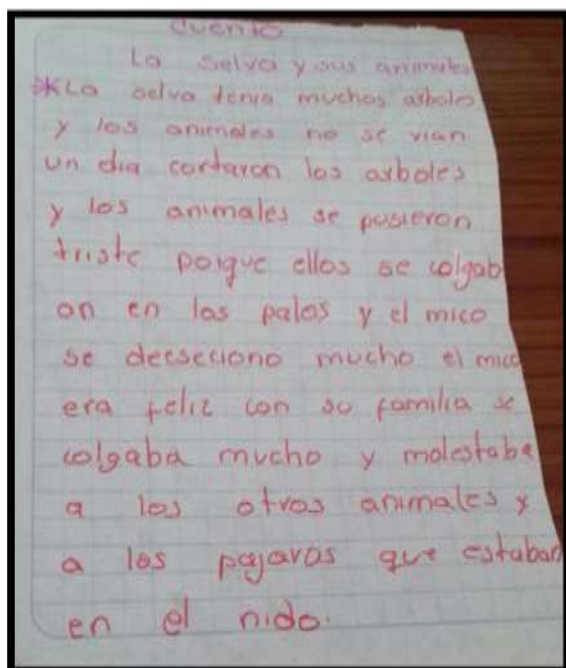 Cuento
La selva y sus animales
*La selva tenia muchos arbole
y los animales no se vian
un dia cortaron los arboles
y los animales se pusieron
triste porque ellos se colgab
an en los palos y el mico
se deeseciono mucho el mico
era feliz con su familia se
colgaba mucho y molestaba
a los otros animales y
a los pajaros que estaban
en el nido.